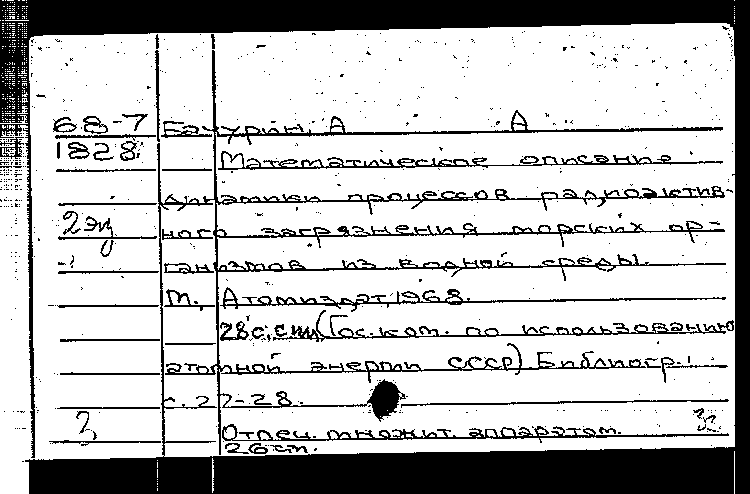 68-7 Бачурин, А А
1828 Математическое описание
динамики процессов радиоактив-
2 экз ного загрязнения морских ор-
ганизмов из водной среды.
М., Атомиздат, 1968.
28 с. (Гос. ком. по использованию
атомной энергии СССР) Библиогр.:
с. 27-28.
Отпеч. множит. аппаратом.
26 см.